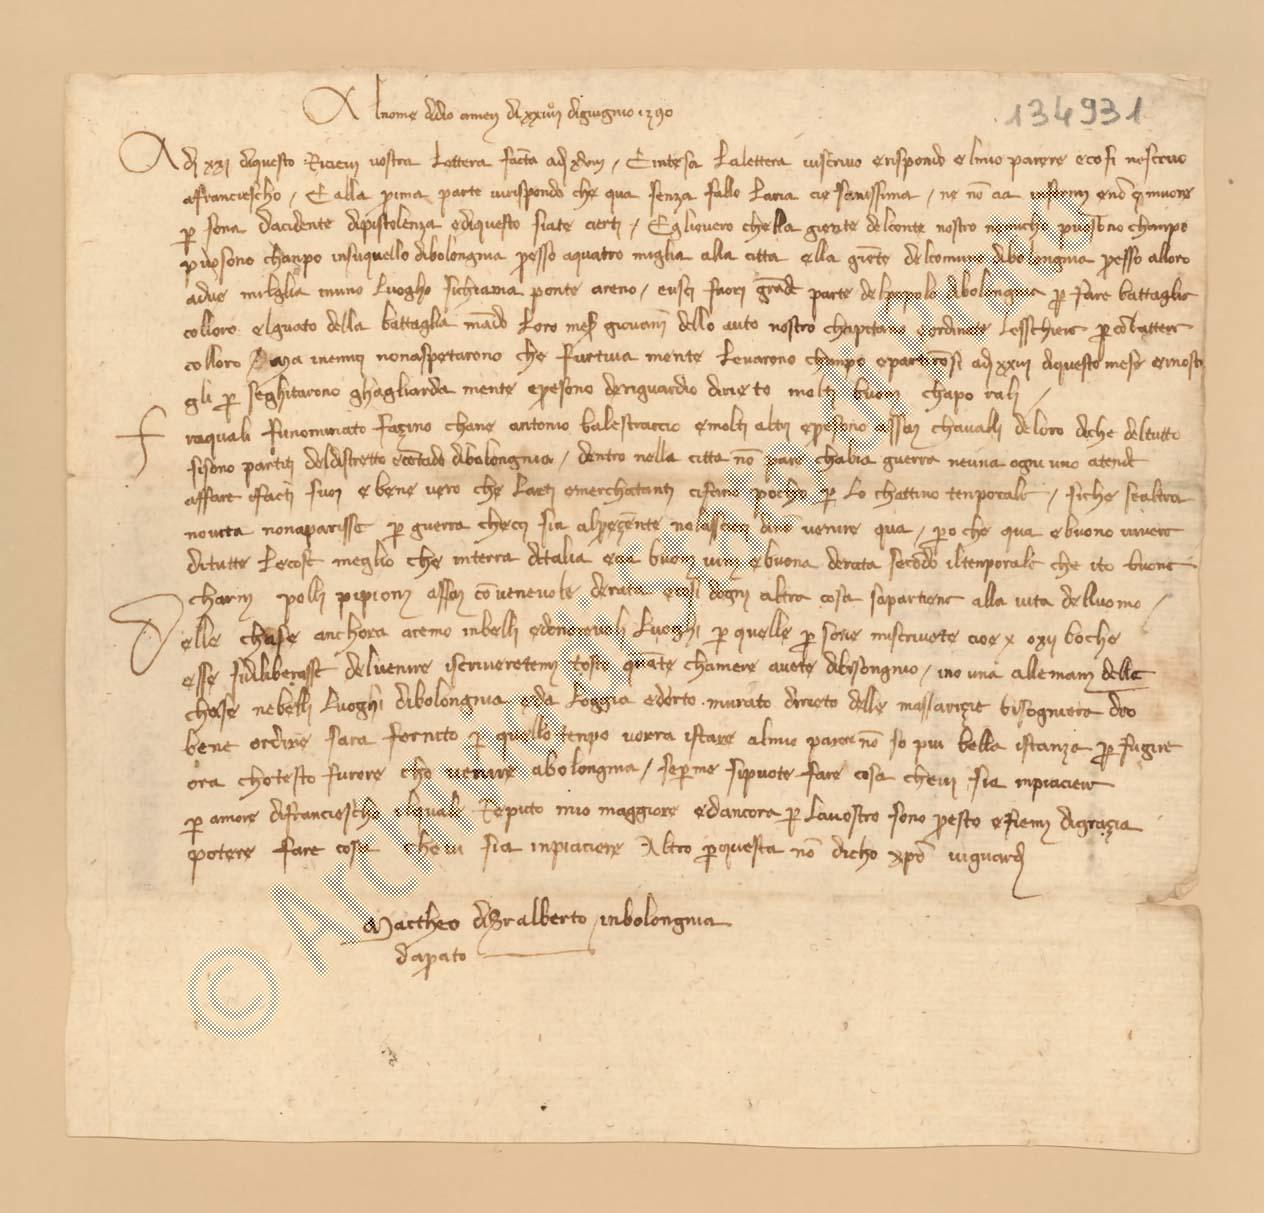 134931
Al nome di dio amen di xxiiii di giugno 1390
A di xxi di questo Ricievi vostra Lettera fatta a di xviii / E intesa La lettera vi scrivo e rispondo e lmio parere e cosi noscrivo
a franciescho / E alla prima parte vi rispondo che qua senza fallo Laria cie sanissima / ne nō cia ne nō ci muore
p̄ sona dacidente di pistolenza e di questo siate cierti / Egli e vero che lla giente del conte nostro nemicho puosono champo
puosono chanpo in su quello di bolongnia presso a quatro miglia alla citta e lla giēte del comune di bolongnia presso alloro
a due milglia inuno Luogho si chiama ponte a reno / e usci fuori grāde parte del popolo di bolongnia p̄ fare battaglia
co lloro e lguato della battaglia mādo Loro mess giovanni dello auto nostro chapitano e ordinate Le schiere p̄ cōbattere
co lloro i nemici non aspetarono che furtiva mente Levarono champo e partirōsi a di xxiii di questo mese e i nostri
gli p̄ seghitarono ghagliarda mente e presono de riguardio dirieto molti buoni chapo rali /
fra quali fu nominato facino chane antonio balestraccio e molti altri e presono assai chavalli de loro di che del tutto
si sono partiti del distretto e cōtado di bolongnia / dentro nella citta nō pare chabia guerra neuna ogni uno atende
affare i fatti suoi e bene vero che Larti e merchatanti ci fano pocho p̄ Lo chattivo tenporale / siche se altra
novita non aparisse p̄ guerra che ci sia al presente no lasciate di venire qua / p̄o che qua e buono vivere
di tutte Le cose meglio che in terra ditalia e cia buoni vini e buona derata secōdo il tenporale che ito buone
charni polli pipioni assai cōvenevole derata e cosi dogni altra cosa sapartiene alla vita delluomo /
delle chase anchora avemo in belli ed onorevoli Luoghi p̄ quelle p̄ sone mi scrivete cioe x o xii boche
e sse si diliberasse del venire iscriveretemi tosto quāte chamere avete di bisongnio / i no una alle mani delle
chase ne belli Luoghi di bolongnia e da Loggia ed orto murato dirieto delle massarizie bisogniera do
bene ordine sara fornito p̄ quello tenpo vorra istare al mio parere nō so piu bella istanza p̄ fugire
ora chotesto furore cho venire a bolongnia / se p̄ me si puote fare cosa che vi sia in piaciere
p̄ amore di franciescho il quale Reputo mio maggiore ed ancora p̄ La vostro sono presto e fiemi di grazia
potere fare cosa che vi sia in piaciere Altro p̄ questa nō dicho xp̄o vi guardi
Mattheo di Ser alberto in bolongnia
da prato
© Archivio di Stato di Prato